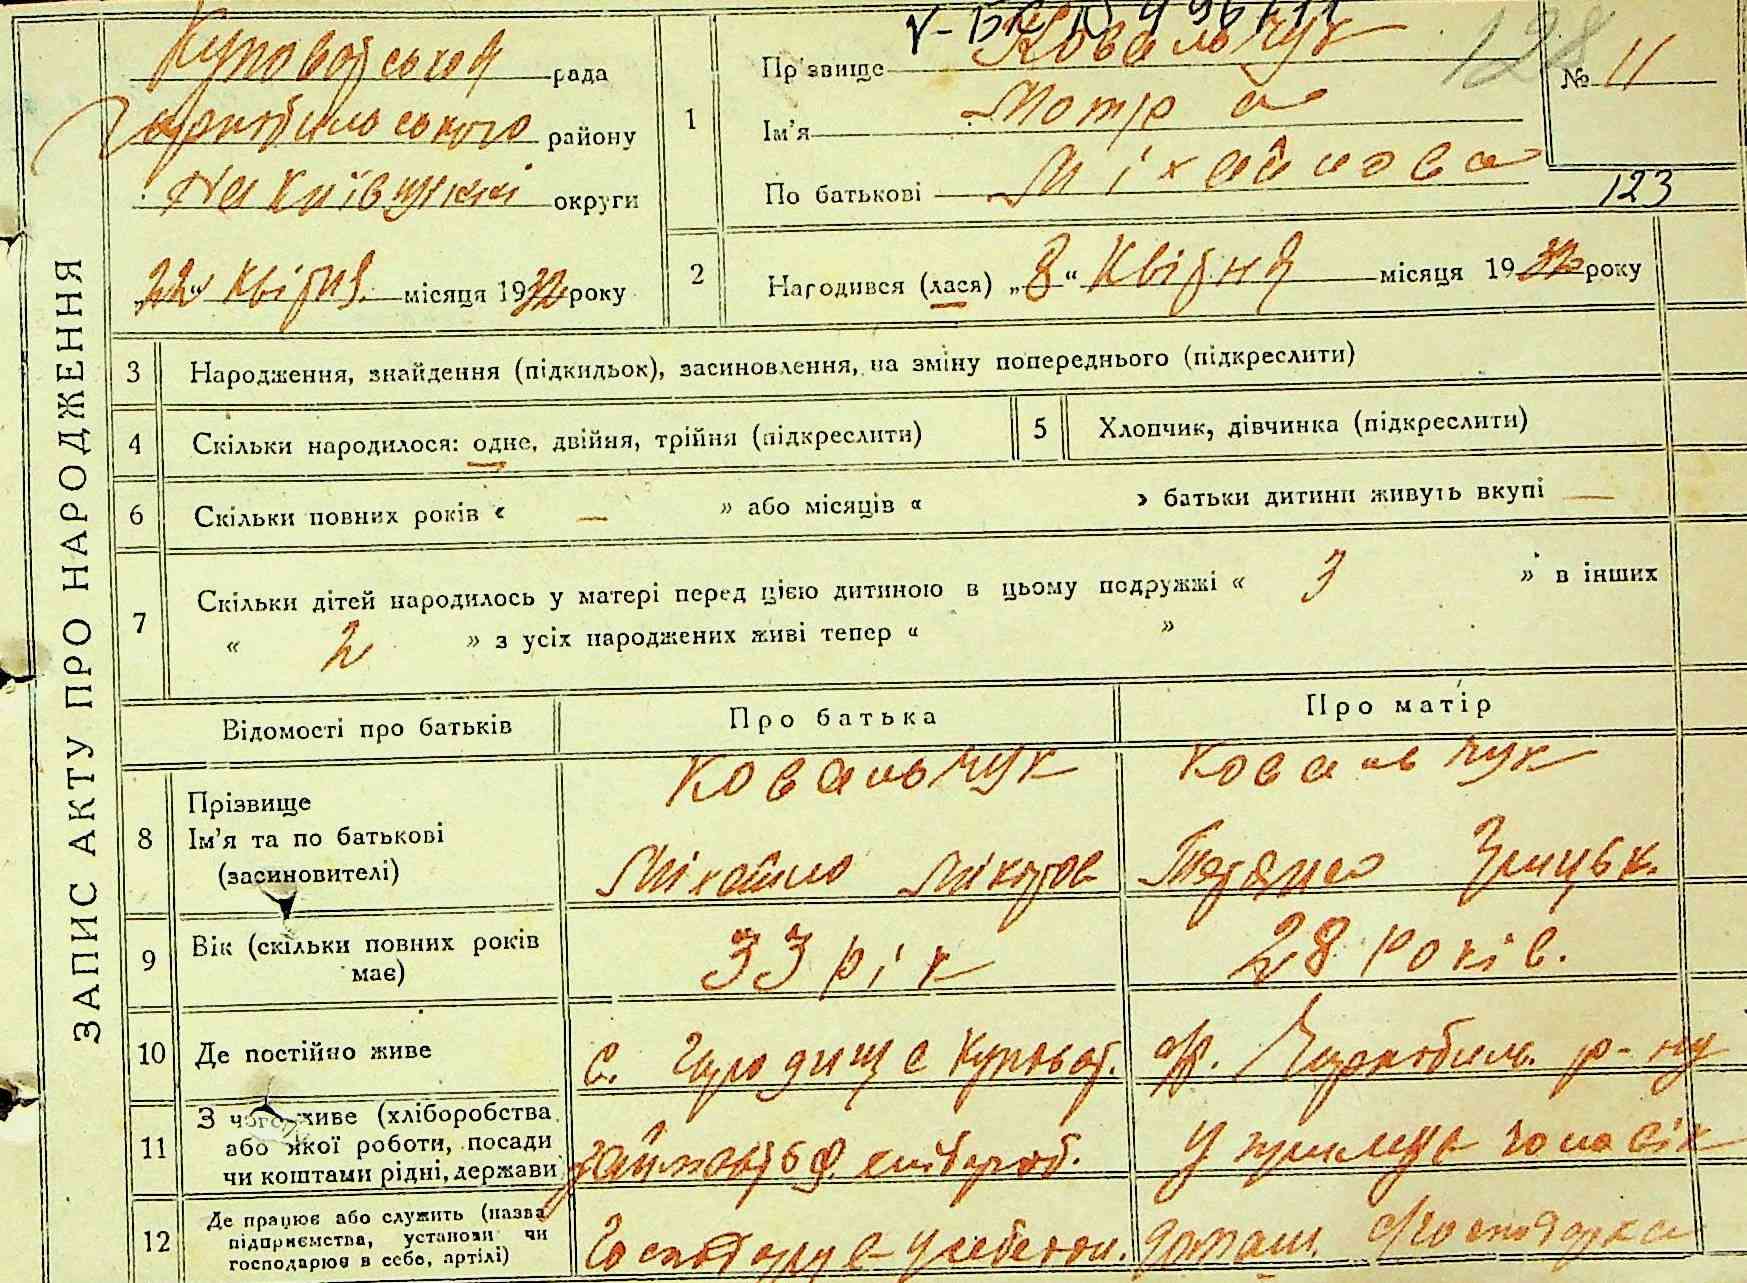 ЗАПИС АКТУ ПРО НАРОДЖЕННЯ
рада
району
на Київщині округи
„22“ Квітня місяця 1932 року
1
Прізвище Ковальчук
Ім'я Мотра
По батькові Міхайлова
128
№ 11
123
2
Народився (лася) „8“ Квітня місяця 1932 року
3 Народження, знайдення (підкидьок), засиновлення, на зміну попереднього (підкреслити)
4 Скільки народилося: одне, двійня, трійня (підкреслити)
5 Хлопчик, дівчинка (підкреслити)
6 Скільки повних років « — » або місяців « » батьки дитини живуть вкупі —
7 Скільки дітей народилось у матері перед цією дитиною в цьому подружжі « 3 » в інших
« 2 » з усіх народжених живі тепер « »
Відомості про батьків Про батька Про матір
8 Прізвище
Ім'я та по батькові
(засиновителі)
Ковальчук
Міхайло
Ковальчук
Тетяна Грицьк.
9 Вік (скільки повних років має) 33 рік 28 років.
10 Де постійно живе с. Городище р-ну
11 З чого живе (хліборобства
або якої роботи, посади
чи коштами рідні, держави
хлібороб.
чоловік
12 Де працює або служить (назва
підприємства, установи чи
господарює в себе, артілі)
Господарує у себе
домаш. господарка